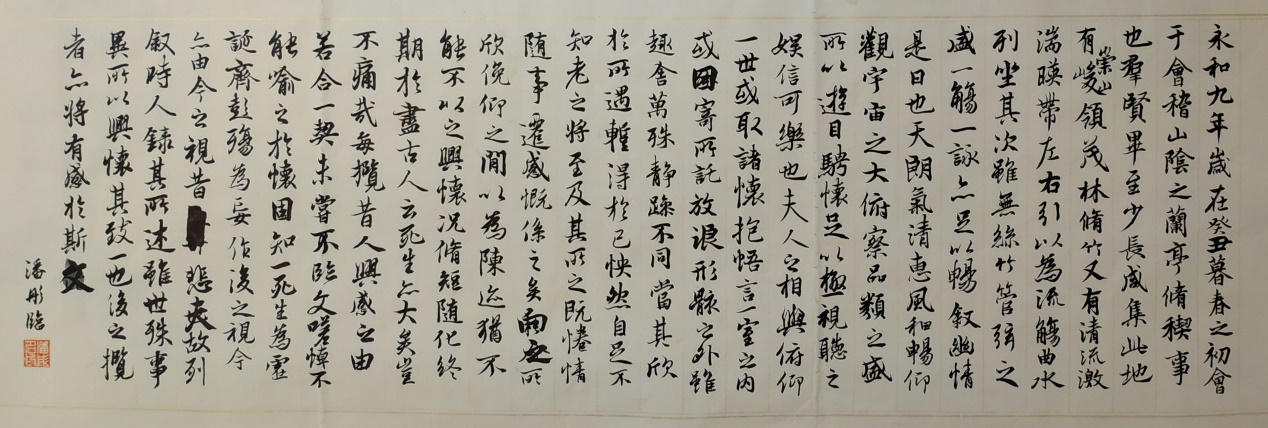 永和九年歲在癸丑暮春之初會
于會稽山陰之蘭亭脩稧事
也羣賢畢至少長咸集此地
有崇山峻領茂林脩竹又有清流激
湍暎帶左右引以為流觴曲水
列坐其次雖無絲竹管弦之
盛一觴一詠亦足以暢敘幽情
是日也天朗氣清惠風和暢仰
觀宇宙之大俯察品類之盛
所以遊目騁懷足以極視聽之
娛信可樂也夫人之相與俯仰
一世或取諸懷抱悟言一室之內
或因寄所託放浪形骸之外雖
趣舍萬殊靜躁不同當其欣
於所遇暫得於己怏然自足不
知老之將至及其所之既惓情
隨事遷感慨係之矣向之所
欣俛仰之閒以為陳迹猶不
能不以之興懷況脩短隨化終
期於盡古人云死生亦大矣豈
不痛哉每攬昔人興感之由
若合一契未嘗不臨文嗟悼不
能喻之於懷固知一死生為虛
誕齊彭殤為妄作後之視今
亦由今之視昔悲夫故列
敘時人錄其所述雖世殊事
異所以興懷其致一也後之攬
者亦將有感於斯文
潘彤臨